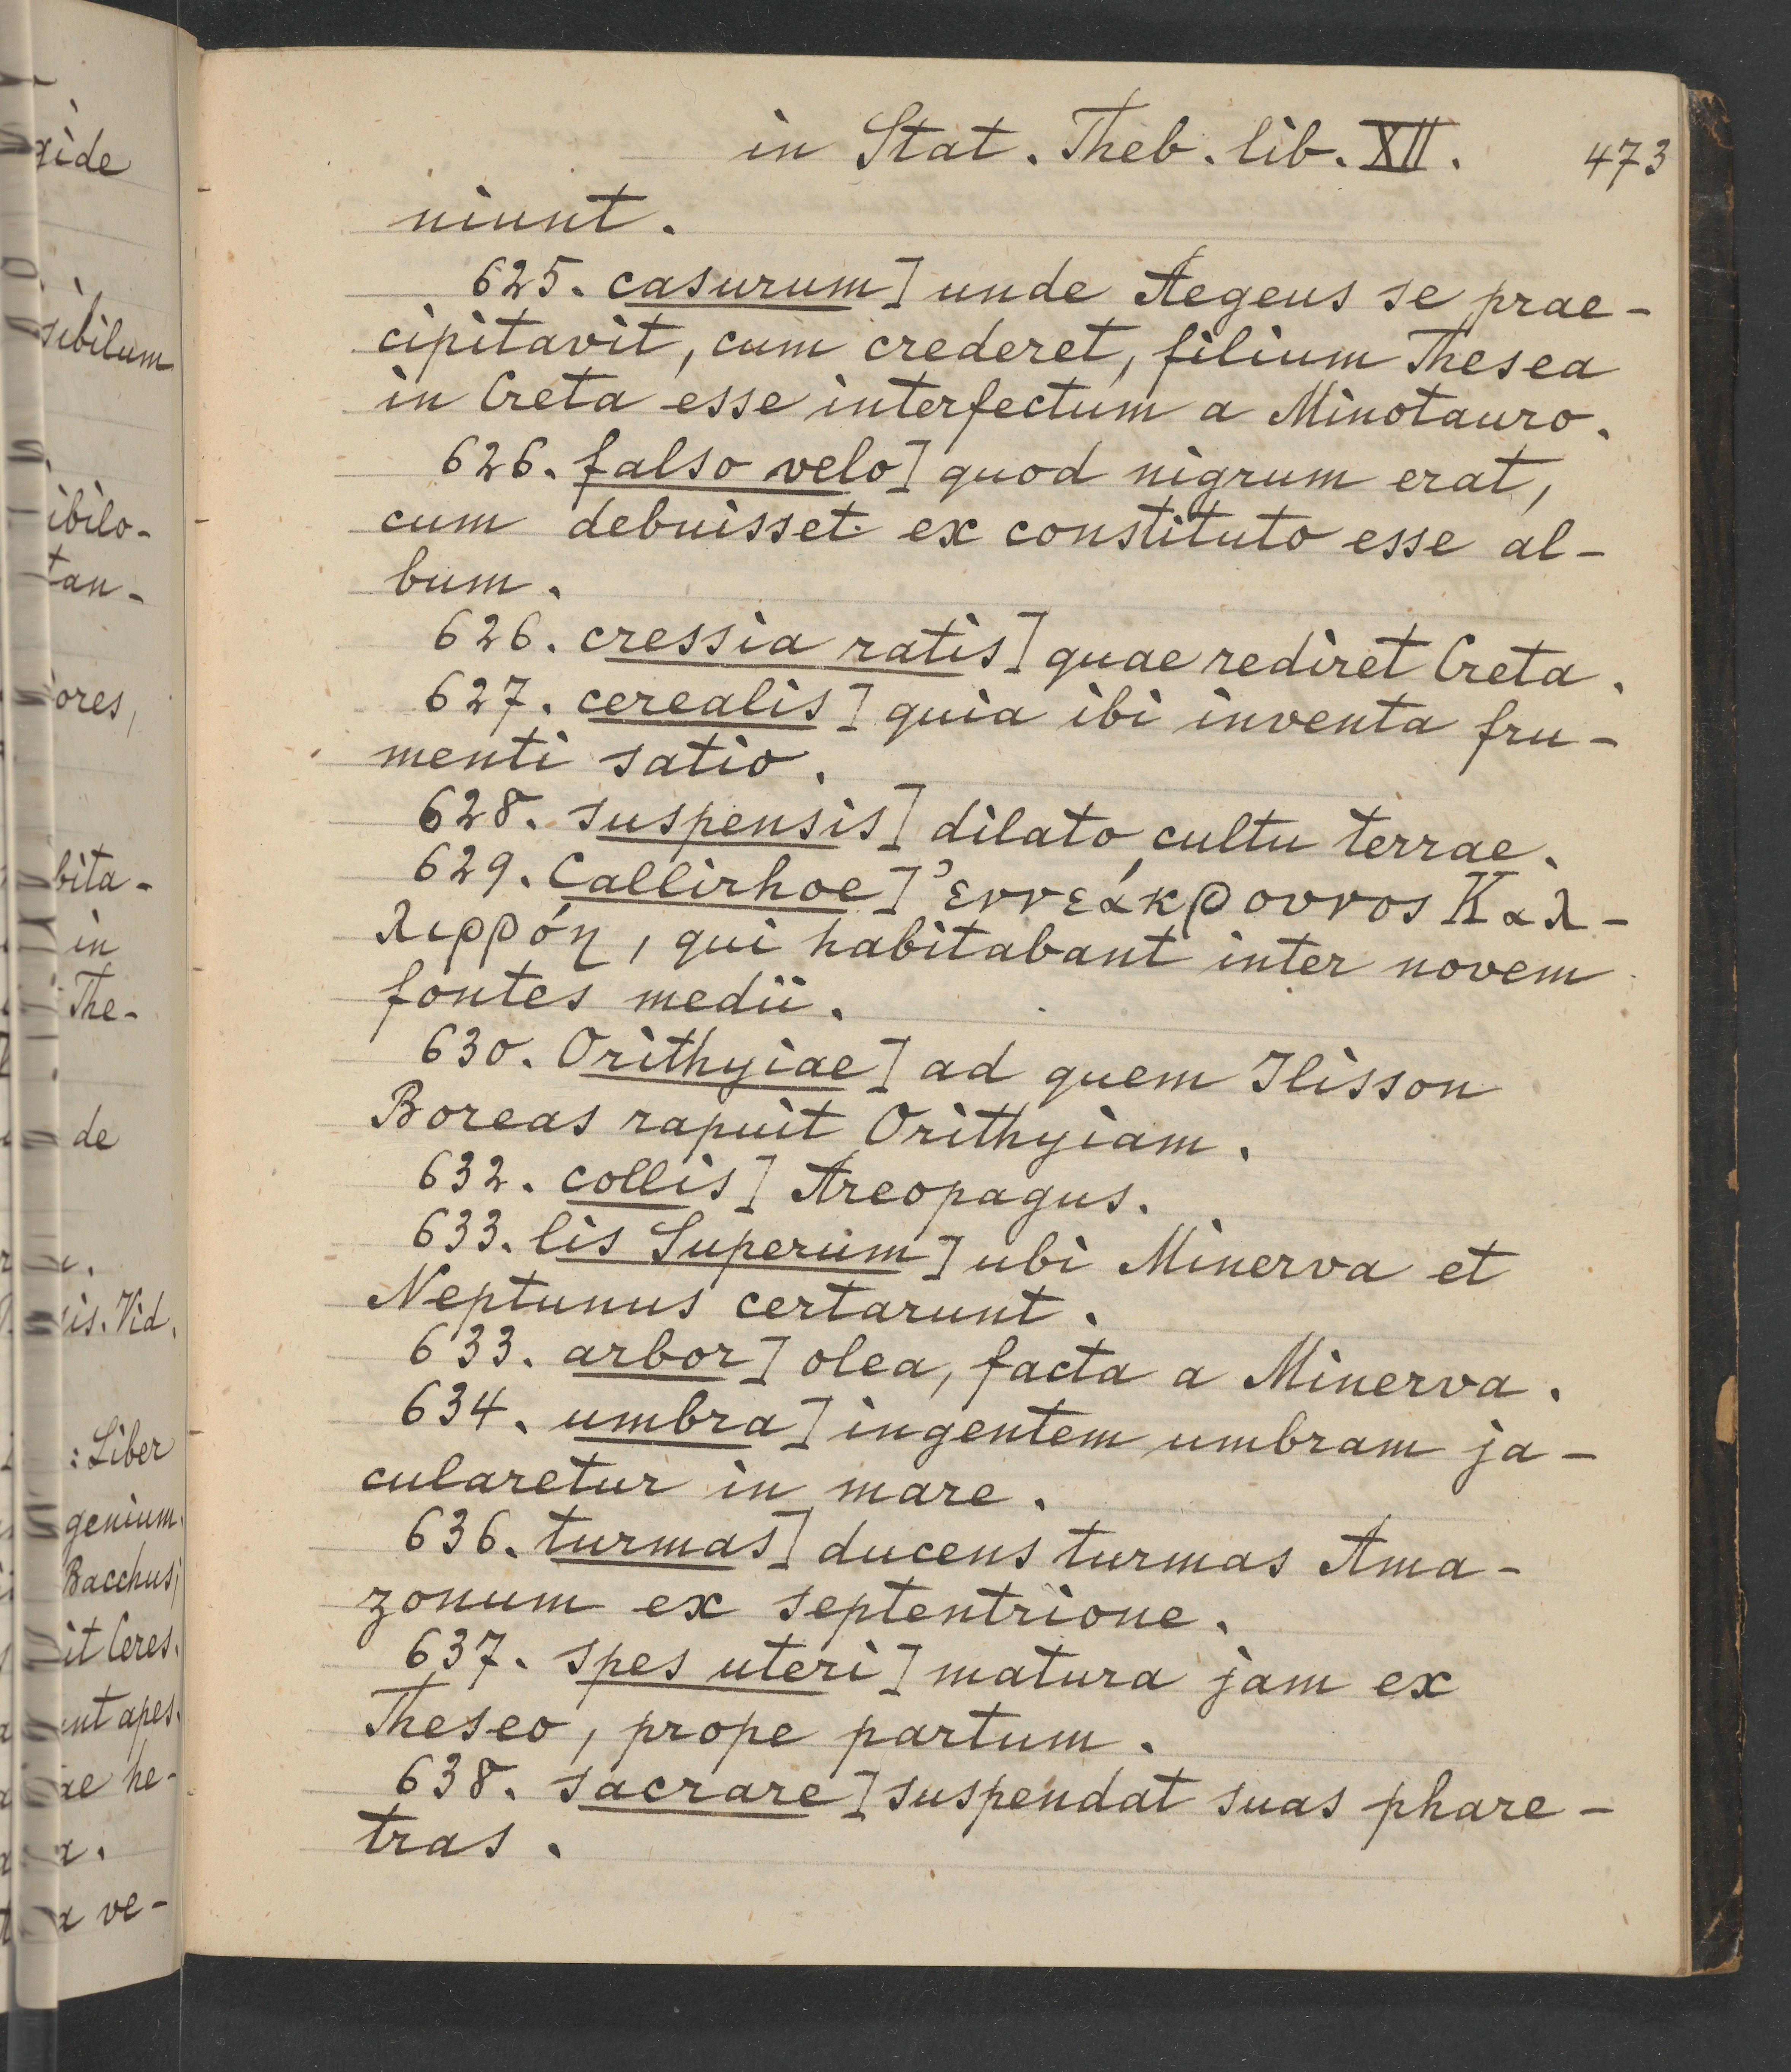 in Stat. Theb. lib. XII. 473
niunt.
625. casurum] unde Aegeus se prae-
cipitavit, cum crederet, filium Thesea
in Creta esse interfectum a Minotauro.
626. falso velo] quod nigrum erat,
cum debuisset ex constituto esse al-
bum.
626. cressia ratis] quae rediret Creta.
627. cerealis] quia ibi inventa fru-
menti satio.
628. suspensis] dilato cultu terrae.
629. Callirhoe] Ἐννεάκρουνος Καλ-
λιρρόη, qui habitabant inter novem
fontes medii.
630. Orithyiae] ad quem Ilisson
Boreas rapuit Orithyiam.
632. collis] Areopagus.
633. lis Superum] ubi Minerva et
Neptunus certarunt.
633. arbor] olea, facta a Minerva.
634. umbra] ingentem umbram ja-
cularetur in mare.
636. turmas] ducens turmas Ama-
zonum ex septentrione.
637. spes uteri] matura jam ex
Theseo, prope partum.
638. sacrare] suspendat suas phare-
tras.